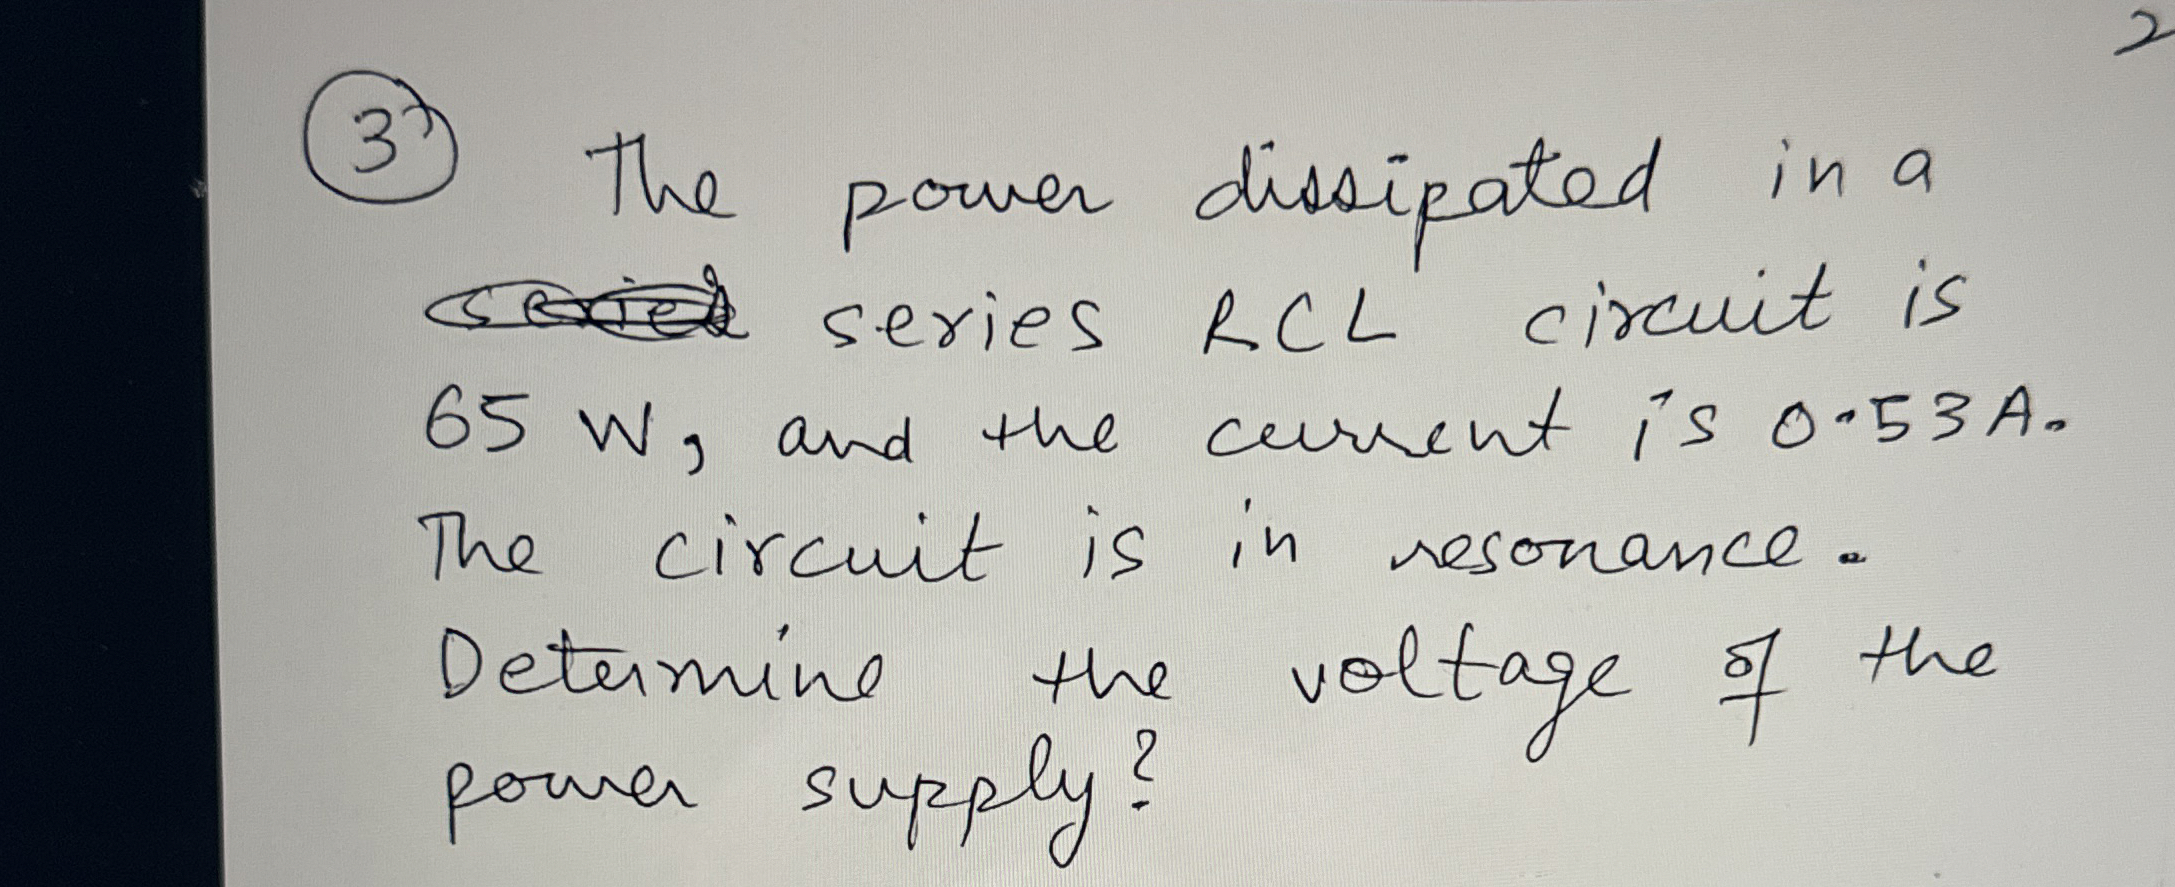 2
③ The power dissipated in a
series RCL circuit is
65 W, and the current is 0.53A.
The circuit is in resonance.
Determine the voltage of the
power supply?